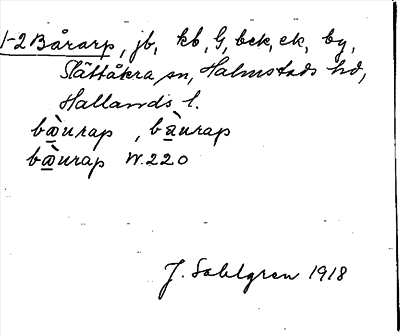 1-2 Bårarp, jb, kb, G, bck, ek, by,
Slättåkra sn, Halmstads hd,
Hallands l.
bæ̀urap, bàurap
bæ̀urap W.220
J. Sahlgren 1918